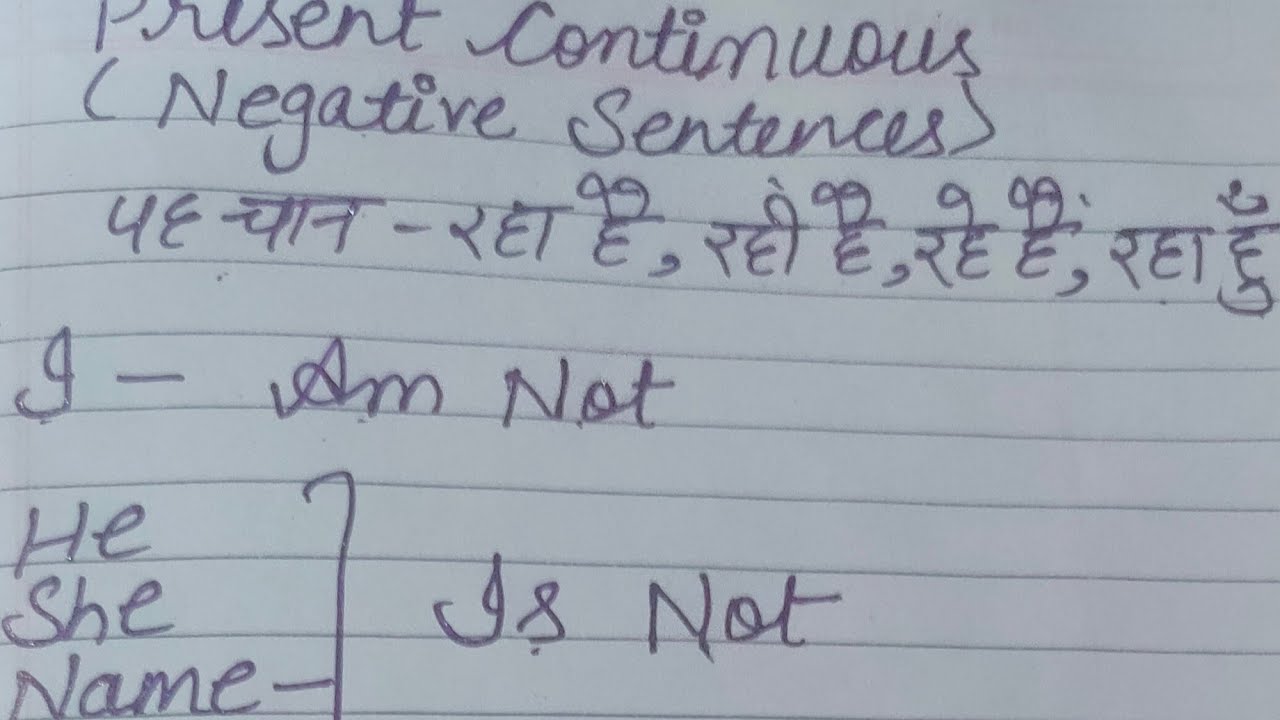 Present Continuous
(Negative Sentences)
पहचान - रहा है, रही है, रहे हैं, रहा हूँ
I - Am Not
He
She Is Not
Name -